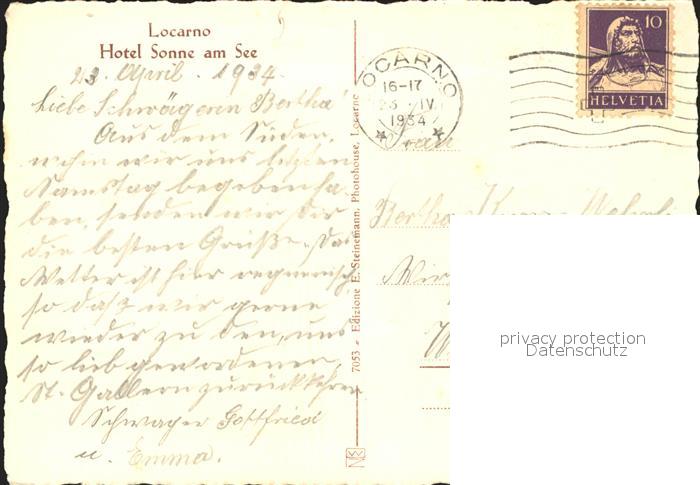 Locarno
Hotel Sonne am See
23. April. 1934.
Liebe Schwägerin Bertha!
Aus dem Süden,
wohin wir uns letzten
Samstag begeben ha
ben, senden wir Dir
die besten Grüße. Das
Wetter ist hier regnerisch
so daß wir gerne
wieder zu den, uns
so lieb gewordenen,
St. Gallern zurückkehren
Schwager Gottfried
u. Emma.
7053 - Edizione E. Steinemann, Photohouse, Locarno
LOCARNO
16-17
23. IV.
1934
10
HELVETIA
Frau
Bertha
privacy protection
Datenschutz